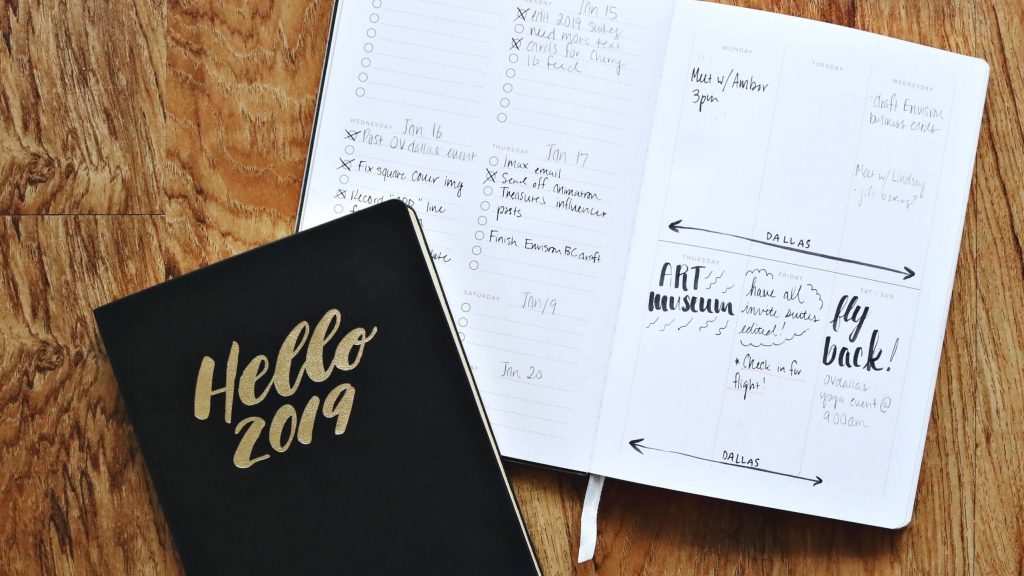 Hello
2019
Jan 15
edit 2019 suites
need more text
cards for cherry
IG feed
WEDNESDAY Jan 16
Post OVdallas event
Fix square cover img
Record line
THURSDAY Jan 17
Imax email
Send off animation
Treasures influencer
posts
Finish Envision BC draft
SATURDAY Jan 19
Jan 20
MONDAY
Meet w/ Amber
3pm
TUESDAY
WEDNESDAY
draft Envision
business cards
Meet w/ Lindsay
gift boxes?
DALLAS
THURSDAY
ART
museum
FRIDAY
have all
invite suites
edited!
* Check in for
flight!
SAT / SUN
fly
back!
OVdallas
yoga event @
9:00am
DALLAS